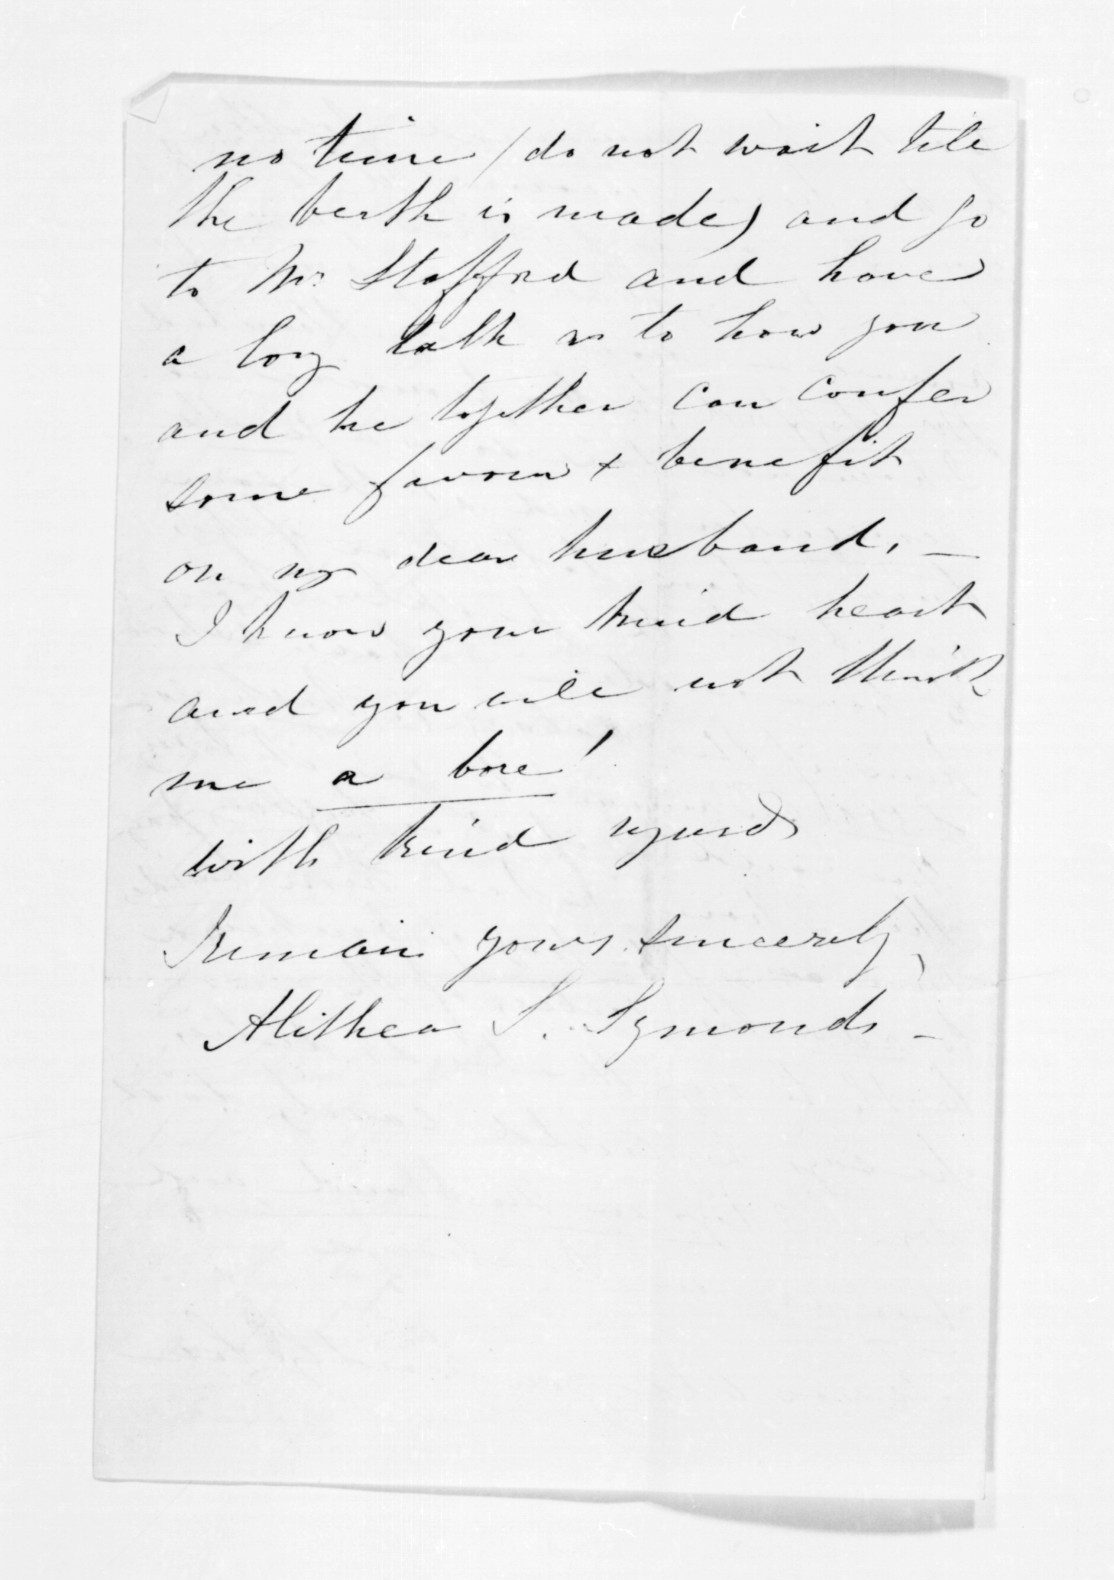 no time (do not wait till
the berth is made) and go
to Mr Stafford and have
a long talk as to how you
and he together can confer
some favour + benefit
on my dear husband. —
I know your kind heart
and you will not think
me a bore!
with kind regards
I remain yours sincerely,
Alithea S. Symonds —